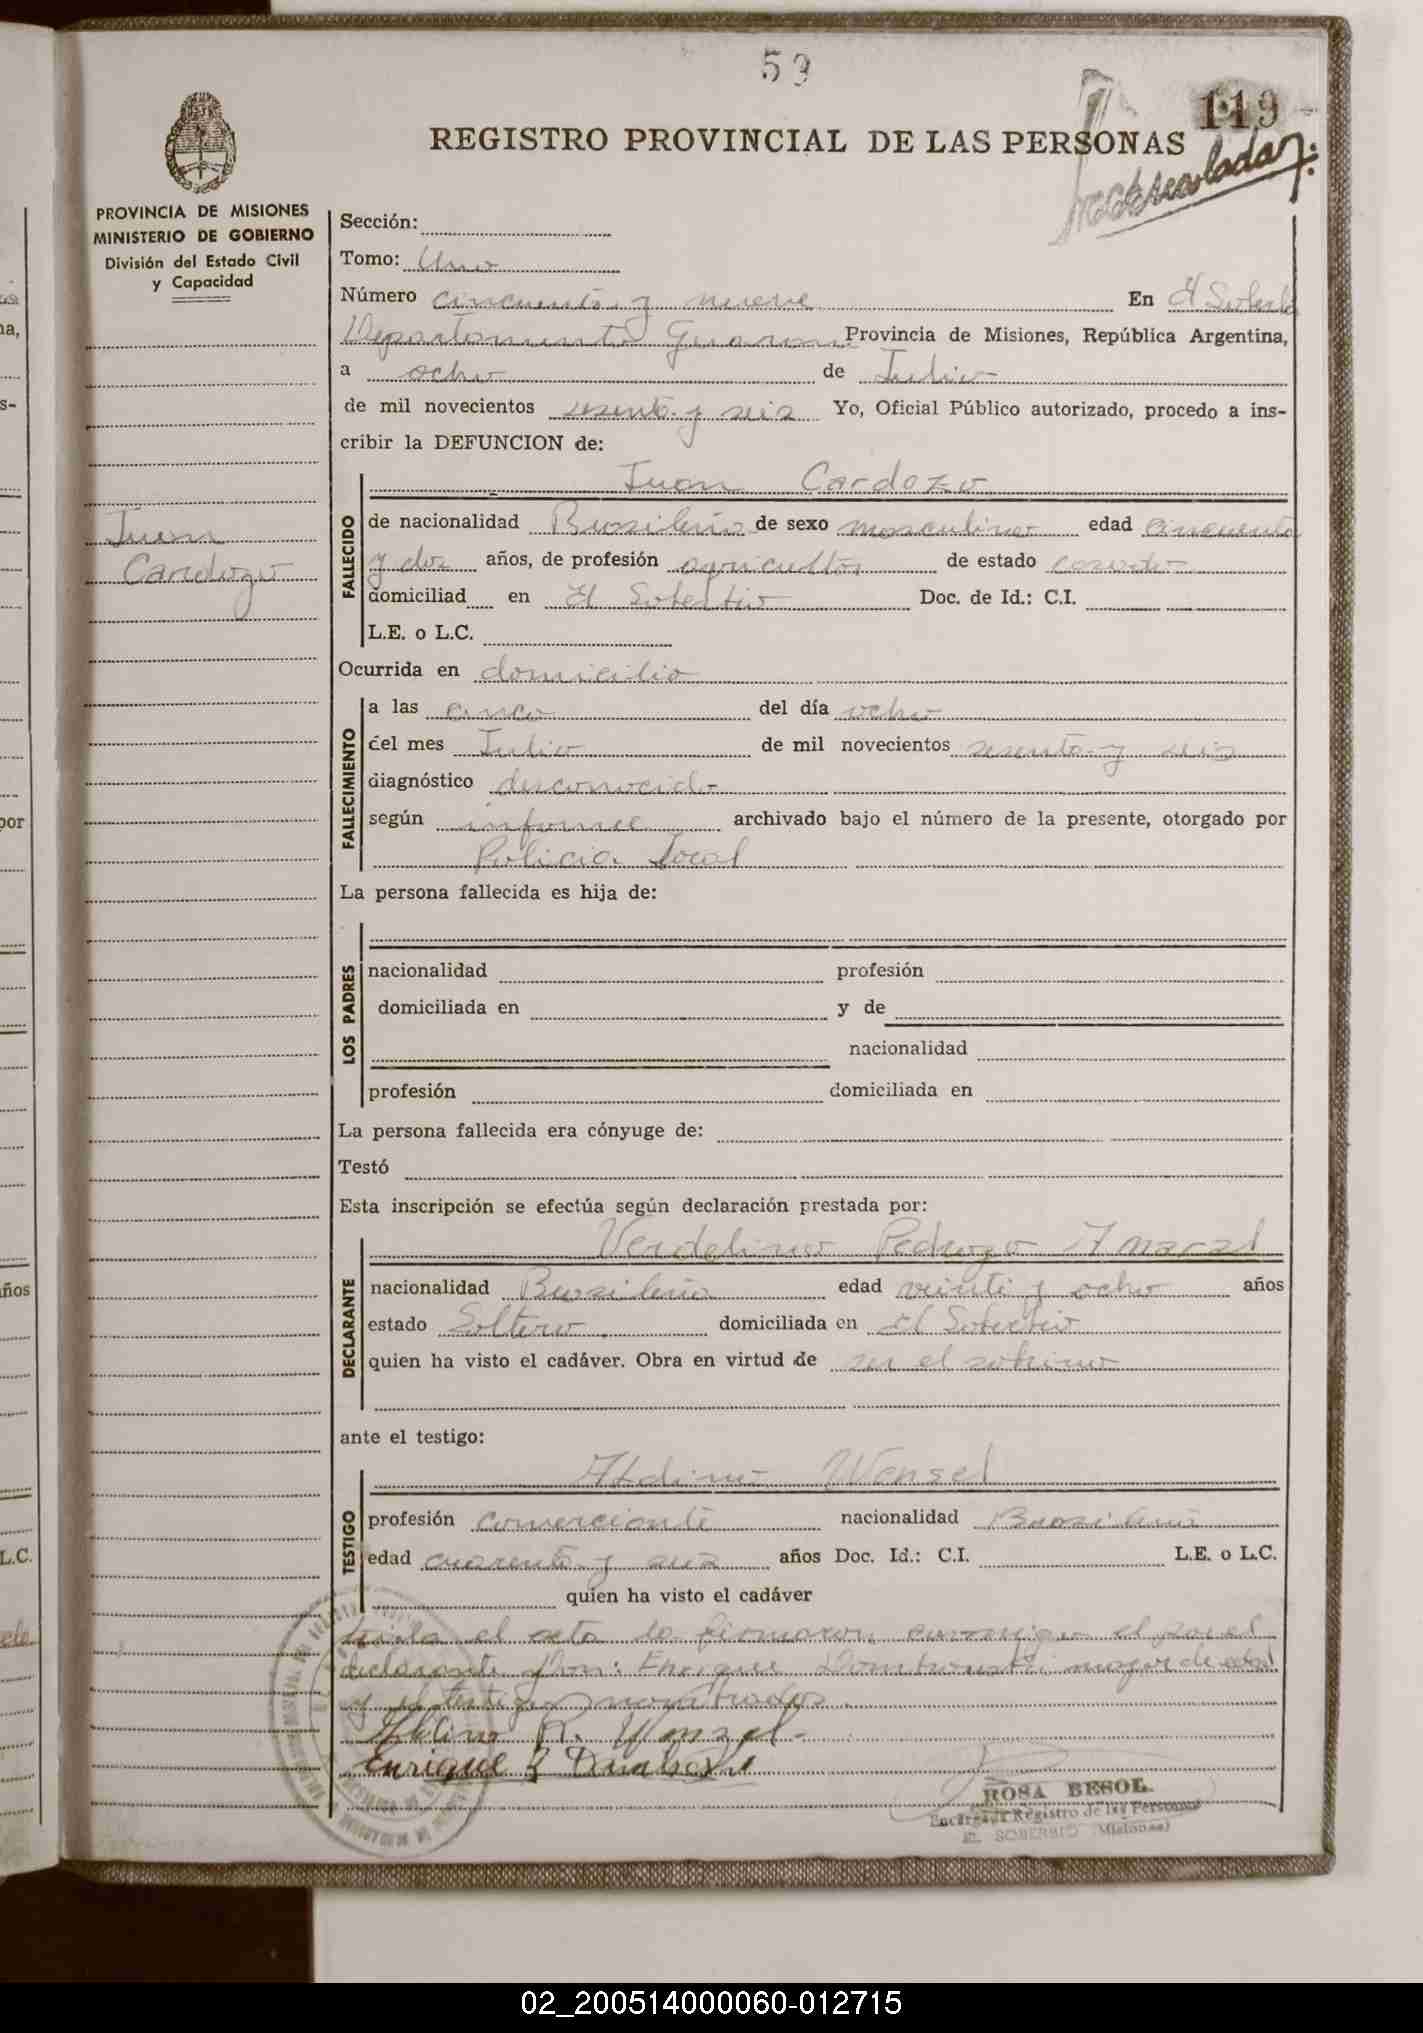 59
119
REGISTRO PROVINCIAL DE LAS PERSONAS
PROVINCIA DE MISIONES
MINISTERIO DE GOBIERNO
División del Estado Civil
y Capacidad
Juan
Cardozo
Sección:
Tomo: Uno
Número cincuenta y nueve En El Soberbio
Departamento Guarani Provincia de Misiones, República Argentina,
a ocho de Julio
de mil novecientos sesenta y seis Yo, Oficial Público autorizado, procedo a ins-
cribir la DEFUNCION de:
Juan Cardozo
FALLECIDO
de nacionalidad Brasileña de sexo masculino edad cincuenta
y dos años, de profesión agricultor de estado casado
domiciliad en El Soberbio Doc. de Id.: C.I.
L.E. o L.C.
Ocurrida en domicilio
FALLECIMIENTO
a las cinco del día ocho
del mes Julio de mil novecientos sesenta y seis
diagnóstico desconocido
según informe archivado bajo el número de la presente, otorgado por
Policia local
La persona fallecida es hija de:
LOS PADRES
nacionalidad profesión
domiciliada en y de
nacionalidad
profesión domiciliada en
La persona fallecida era cónyuge de:
Testó
Esta inscripción se efectúa según declaración prestada por:
Verdelino Pedrozo Amaral
DECLARANTE
nacionalidad Brasileña edad veinti y ocho años
estado Soltero domiciliada en El Soberbio
quien ha visto el cadáver. Obra en virtud de ser el sobrino
ante el testigo:
Wensel
TESTIGO
profesión comerciante nacionalidad Brasileña
edad cuarenta y seis años Doc. Id.: C.I. L.E. o L.C.
quien ha visto el cadáver
el acta la firmaron conmigo el por el
declarante don: Enrique mayor de edad
y el testigo nombrados.
R. Wensel
Enrique
ROSA BESOL
Encargada Registro de las Personas
EL SOBERBIO (Misiones)
02_200514000060-012715